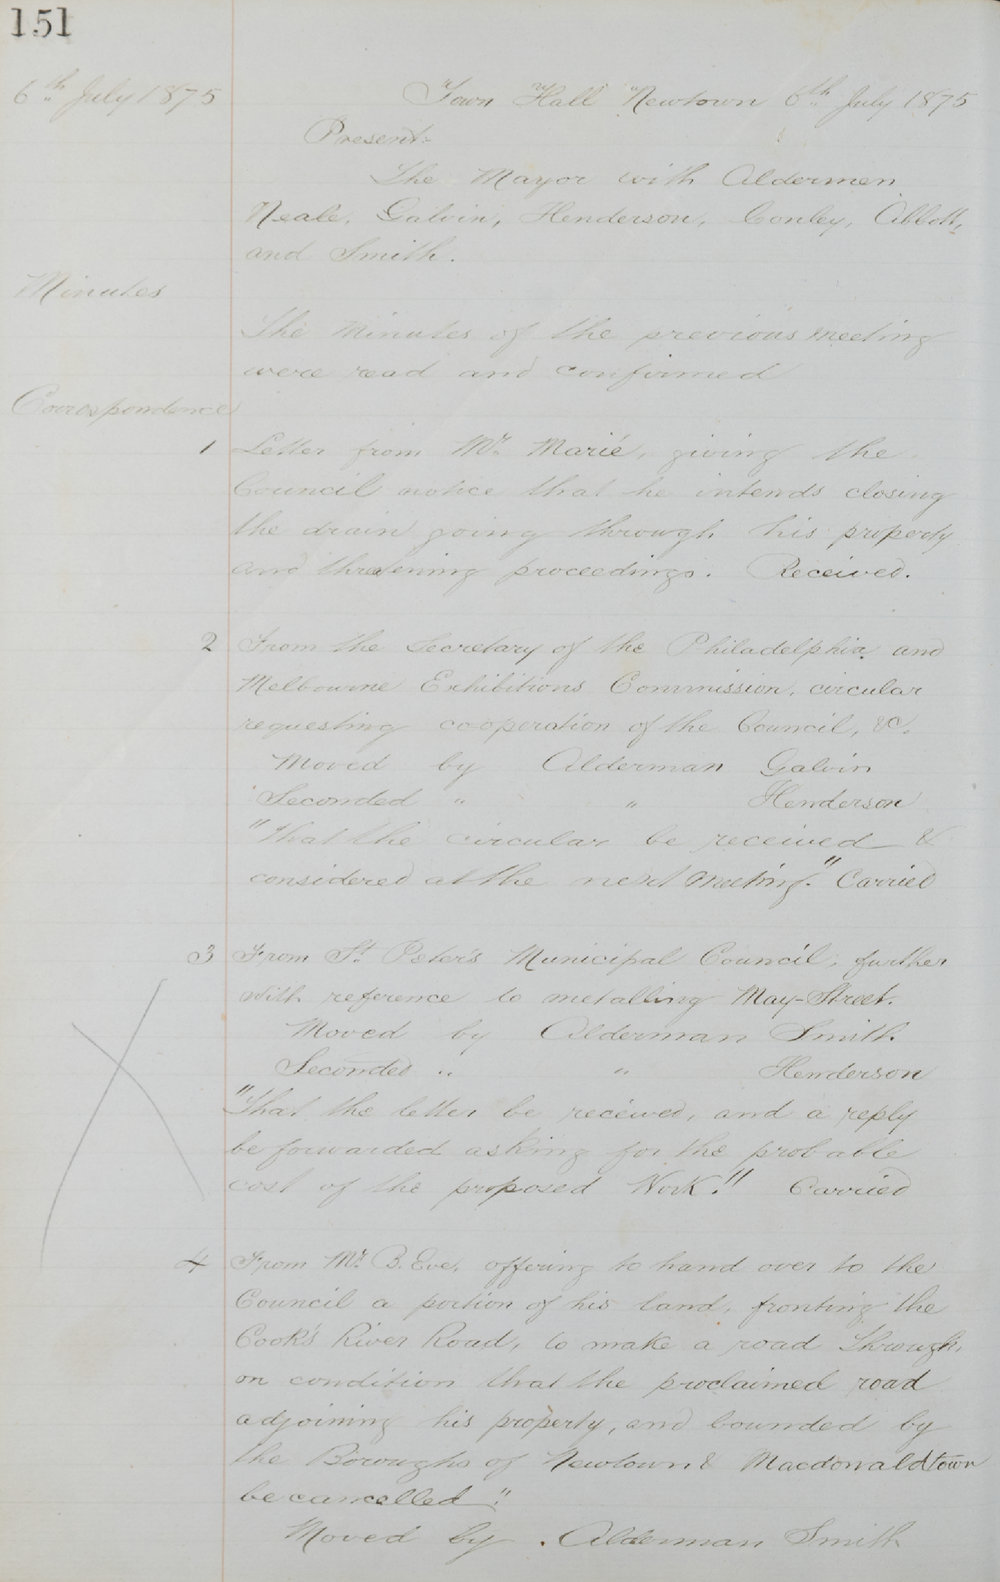 151
6th July 1875
Town Hall Newtown 6th July 1875
Present.
The Mayor with Aldermen
Neale, Galvin, Henderson, Conley, Abbott,
and Smith.
Minutes
The Minutes of the previous meeting
were read and confirmed
Correspondence
1 Letter from Mr. Marié, giving the
Council notice that he intends closing
the drain going through his property
and threatening proceedings. Received.
2 From the Secretary of the Philadelphia and
Melbourne Exhibitions Commission, circular
requesting cooperation of the Council, &c.
Moved by Alderman Galvin
Seconded " " Henderson
"That the circular be received &
considered at the next meeting." Carried
3 From St. Peter's Municipal Council, further
with reference to metalling May-Street.
Moved by Alderman Smith.
Seconded " " Henderson
"That the letter be received, and a reply
be forwarded asking for the probable
cost of the proposed Work." Carried
4 From Mr. B. Eve, offering to hand over to the
Council a portion of his land, fronting the
Cook's River Road, to make a road through,
on condition that the proclaimed road
adjoining his property, and bounded by
the Boroughs of Newtown & Macdonaldtown
be cancelled."
Moved by Alderman Smith